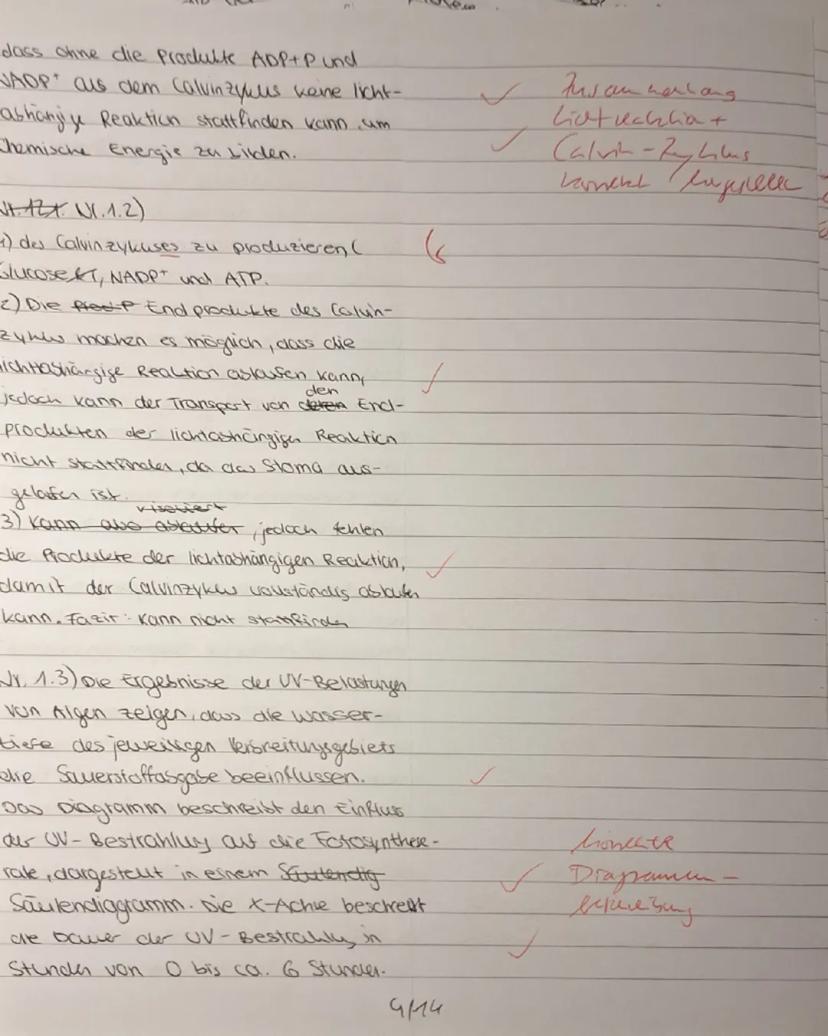 dass ohne die Produkte ADP+P und
NADP⁺ aus dem Calvinzyklus keine licht-
abhängige Reaktion stattfinden kann um
chemische Energie zu bilden.
Zusammenhang
Lichtreaktion +
Calvin-Zyklus
korrekt
Nr. 1.2)
1) des Calvinzykuses zu produzieren (
Glucose, NADP⁺ und ATP.
2) Die Endprodukte des Calvin-
zyklus machen es möglich, dass die
lichtabhängige Reaktion ablaufen kann,
jedoch kann der Transport von den End-
produkten der lichtabhängigen Reaktion
nicht stattfinden, da das Stoma aus-
gelaufen ist.
3) jedoch fehlen
die Produkte der lichtabhängigen Reaktion,
damit der Calvinzyklus vollständig ablaufen
kann. Fazit: kann nicht stattfinden
Nr. 1.3) Die Ergebnisse der UV-Belastungen
von Algen zeigen, dass die Wasser-
tiefe des jeweiligen Verbreitungsgebiets
die Sauerstoffabgabe beeinflussen.
Das Diagramm beschreibt den Einfluss
der UV-Bestrahlung auf die Fotosynthese-
rate, dargestellt in einem
Säulendiagramm. Die X-Achse beschreibt
die Dauer der UV-Bestrahlung in
Stunden von 0 bis ca. 6 Stunden.
korrekte
Diagramm-
beschreibung
4/14